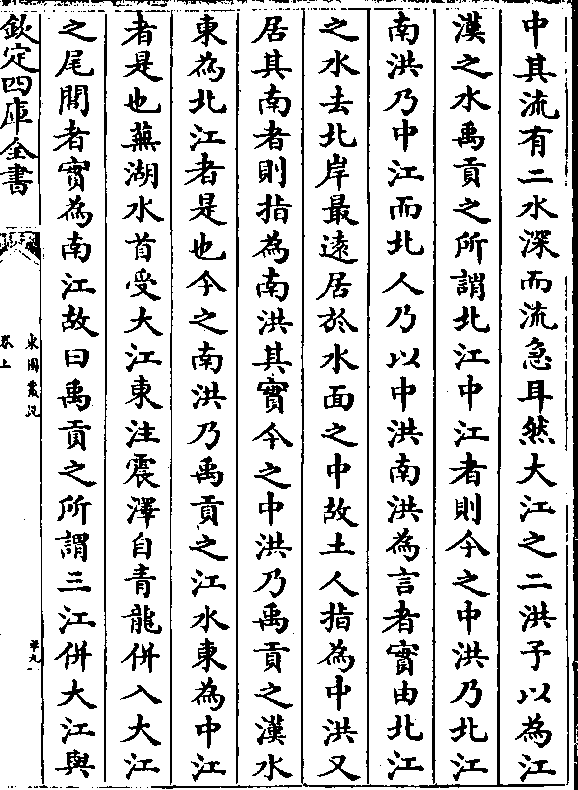 中其流有二水深而流急耳然大江之二洪予以為江
漢之水禹貢之所謂北江中江者則今之中洪乃北江
南洪乃中江而北人乃以中洪南洪為言者實由北江
之水去北岸最遠居於水面之中故土人指為中洪又
居其南者則指為南洪其實今之中洪乃禹貢之漢水
東為北江者是也今之南洪乃禹貢之江水東為中江
者是也蕪湖水首受大江東注震澤自青龍併入大江
之尾閭者實為南江故曰禹貢之所謂三江併大江與
欽定四庫全書
東園叢説
卷上